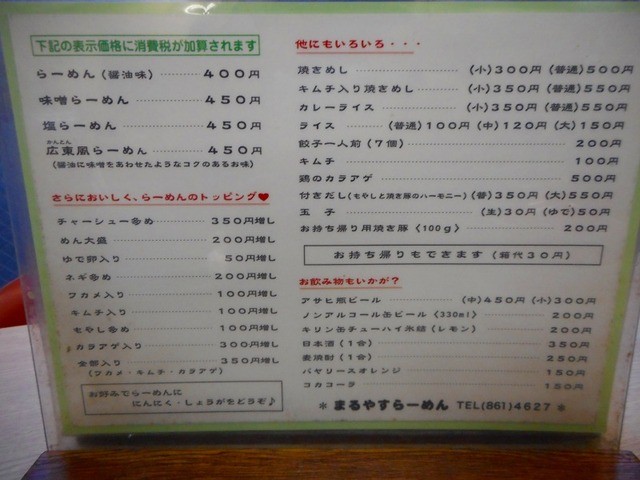 下記の表示価格に消費税が加算されます
らーめん（醤油味） 400円
味噌らーめん 450円
塩らーめん 450円
かんとん
広東風らーめん 450円
（醤油に味噌をあわせたようなコクのあるお味）
さらにおいしく、らーめんのトッピング♥
チャーシュー多め 350円増し
めん大盛 200円増し
ゆで卵入り 50円増し
ネギ多め 200円増し
ワカメ入り 100円増し
キムチ入り 100円増し
もやし多め 100円増し
カラアゲ入り 300円増し
全部入り 350円増し
（ワカメ・キムチ・カラアゲ）
お好みでらーめんに
にんにく・しょうがをどうぞ♪
他にもいろいろ・・・
焼きめし （小）300円（普通）500円
キムチ入り焼きめし （小）350円（普通）550円
カレーライス （小）350円（普通）550円
ライス （普通）100円（中）120円（大）150円
餃子一人前（7個） 200円
キムチ 100円
鶏のカラアゲ 500円
付きだし（もやしと焼き豚のハーモニー）（普）350円（大）550円
玉子 （生）30円（ゆで）50円
お持ち帰り用焼き豚〈100g〉 200円
お持ち帰りもできます（箱代30円）
お飲み物もいかが？
アサヒ瓶ビール （中）450円（小）300円
ノンアルコール缶ビール〈330ml〉 200円
キリン缶チューハイ氷結（レモン） 200円
日本酒（1合） 350円
麦焼酎（1合） 250円
バヤリースオレンジ 150円
コカコーラ 150円
＊ まるやすらーめん TEL(861)4627 ＊